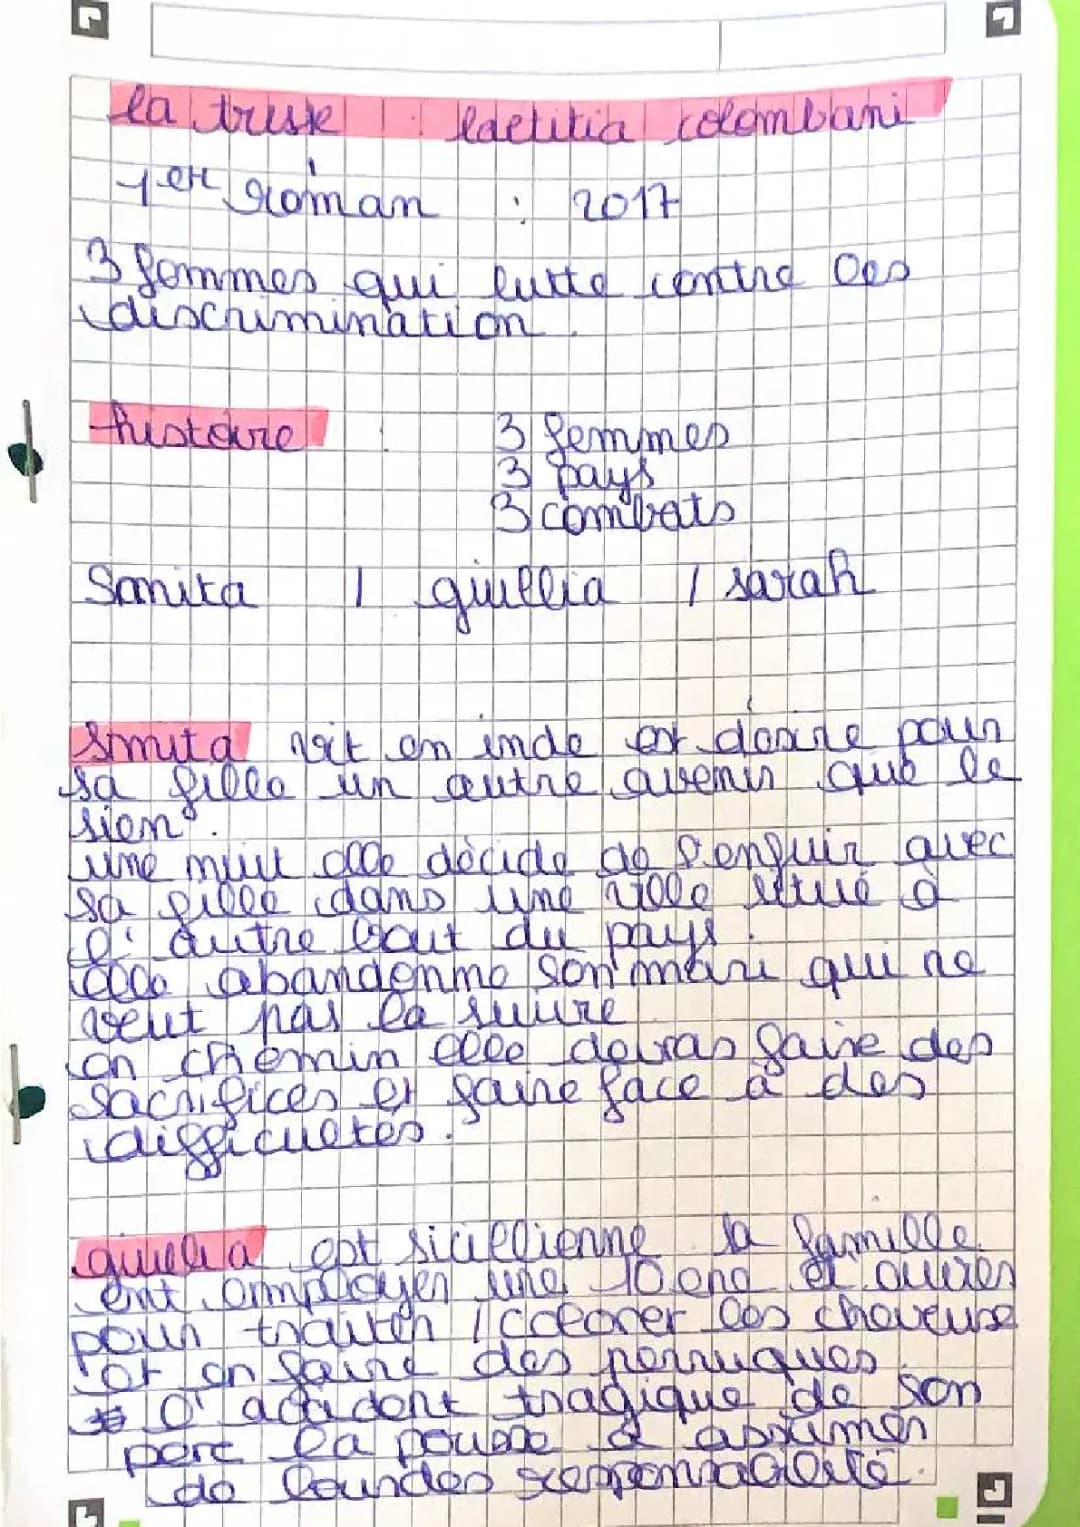 la tresse : laetitia colombani
1er roman : 2017
3 femmes qui lutte contre les
discrimination.
histoire : 3 femmes
3 pays
3 combats
Smita / giullia / sarah
Smita vit en inde et désire pour
sa fille un autre avenir que le
sien.
une nuit elle décide de s'enfuir avec
sa fille dans une ville situé à
l'autre bout du pays.
elle abandonne son mari qui ne
veut pas la suivre
en chemin elle devras faire des
sacrifices et faire face à des
difficultés.
giulia est sicillienne sa famille
ent employer une 10ene d'ouvires
pour traiter / colorer les cheveuse
et en faire des perruques.
l'accident tragique de son
pere la pousse à assumer
de lourdes responsabilité.